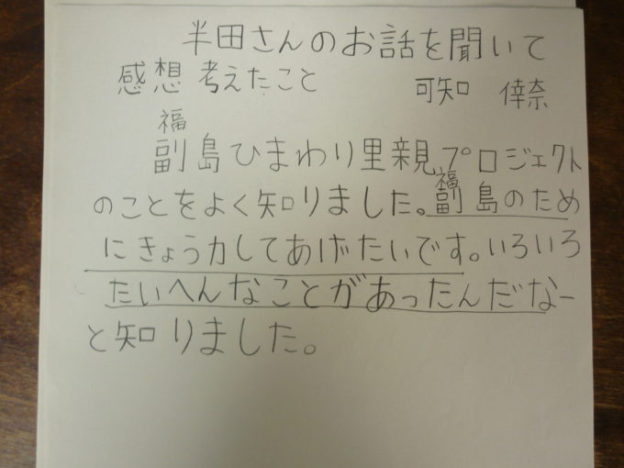 半田さんのお話を聞いて
感想 考えたこと 可知 倖奈
福
副島ひまわり里親プロジェクト
のことをよく知りました。副島のため
福
にきょう力してあげたいです。いろいろ
たいへんなことがあったんだなー
と知りました。